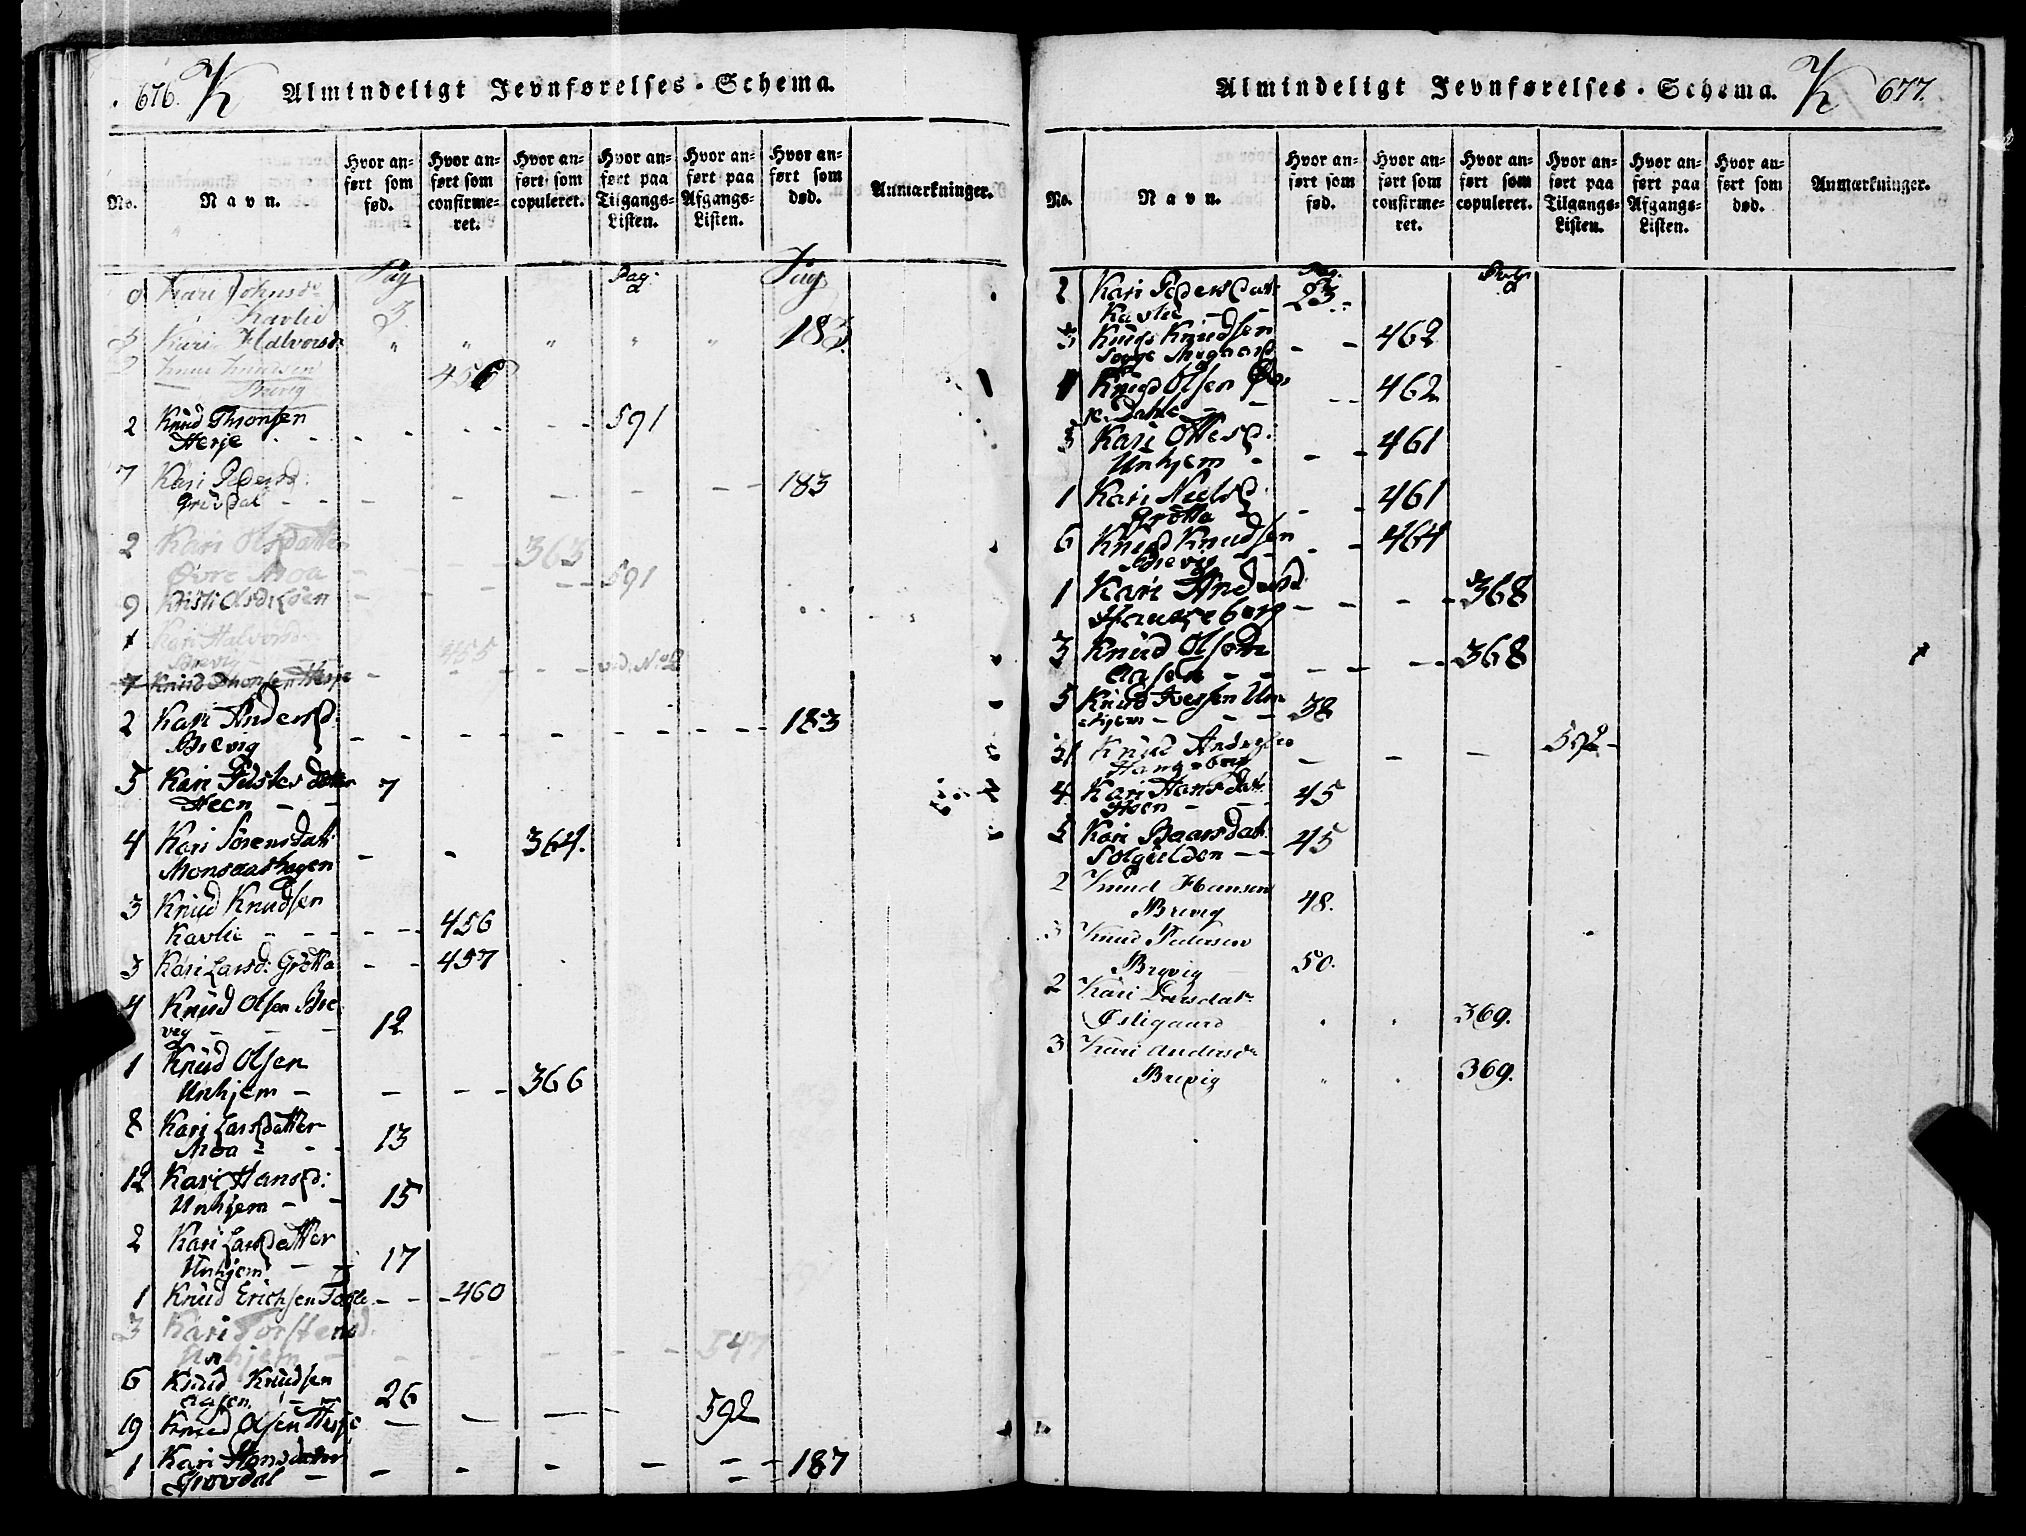 676. K Almindeligt Jevnførelses-Schema.
No.
Navn.
Hvor an-
ført som
fød.
Hvor an-
ført som
confirme-
ret.
Hvor an-
ført som
copuleret.
Hvor an-
ført paa
Tilgangs-
Listen.
Hvor an-
ført paa
Afgangs-
Listen.
Hvor an-
ført som
død.
Anmærkninger.
Pag Pag. Pag
Kari Johnsd.
Kavlie 3.
3 Kari Halvorsd. " " " " " 183.
Knud Knudsen 456
Brevig
2 Knud Thronsen
Herje - - - - - - 591
7 Kari Pedersd:
Grüvdal - - - - - - - - 183
2 Kari Olsdatter
Øvre Moa - - - 363
9 Kristi Olsd: - - - - 591
1 Kari Halvorsd.
Brevig 455
7 Knud Thronsen Herje - - - - vid. No 2
2 Kari Andersd:
Brevig - - - - - - - - 183
5 Kari datter
Heen - - 7
4 Kari Sørensdatt
Monsaashagen - - 364.
3 Knud Knudsen
Kavlie - - - - 456
3 Kari Larsd: Grötta - - 457
4 Knud Olsen Bre
vig - - - 12
1 Knud Olsen
Unhjem - - - - 366
8 Kari Larsdatter
Moa - - - 13
12 Kari Hansd:
Unhjem - - 15
2 Kari Larsdatter
Unhjem - - 17
1 Knud Erichsen - - - 460
3 Kari Torstensd.
Unhjem - - - - - - 547
6 Knud Knudsen
Aasen - - 26
19 Knud Olsen Herje - - - - 592
1 Kari Hansdatter
Grövdal - - - - - - - - 187
Almindeligt Jevnførelses-Schema. K 677.
No.
Navn.
Hvor an-
ført som
fød.
Hvor an-
ført som
confirme-
ret.
Hvor an-
ført som
copuleret.
Hvor an-
ført paa
Tilgangs-
Listen.
Hvor an-
ført paa
Afgangs-
Listen.
Hvor an-
ført som
død.
Anmærkninger.
Pag.
2 Kari Pedersdat 23.
Kavlie - -
3 Knud Knudsen
- - 462
1 Knud Olsen
Dahle - - - - 462
3 Kari Ottesd:
Unhjem - - - 461
1 Kari Nielsd:
Grötta - - - 461
6 Knud Knudsen
Brevig - - - - 464
1 Kari Andersd
- - - - 368
3 Knud Olsen
Aasen - - - - - - 368
5 Knud Iversen Un-
hjem - - - 38
Knud
- - - 592 -
4 Kari Hansdat.
Heen - - - 45
5 Kari Baarsdat.
- - 45
2 Knud Hansen
Brevig 48.
3 Knud Pedersen
Brevig 50.
2 Kari Larsdat.
Østigaard " " 369.
3 Kari Andersd.
Brevig " " 369.